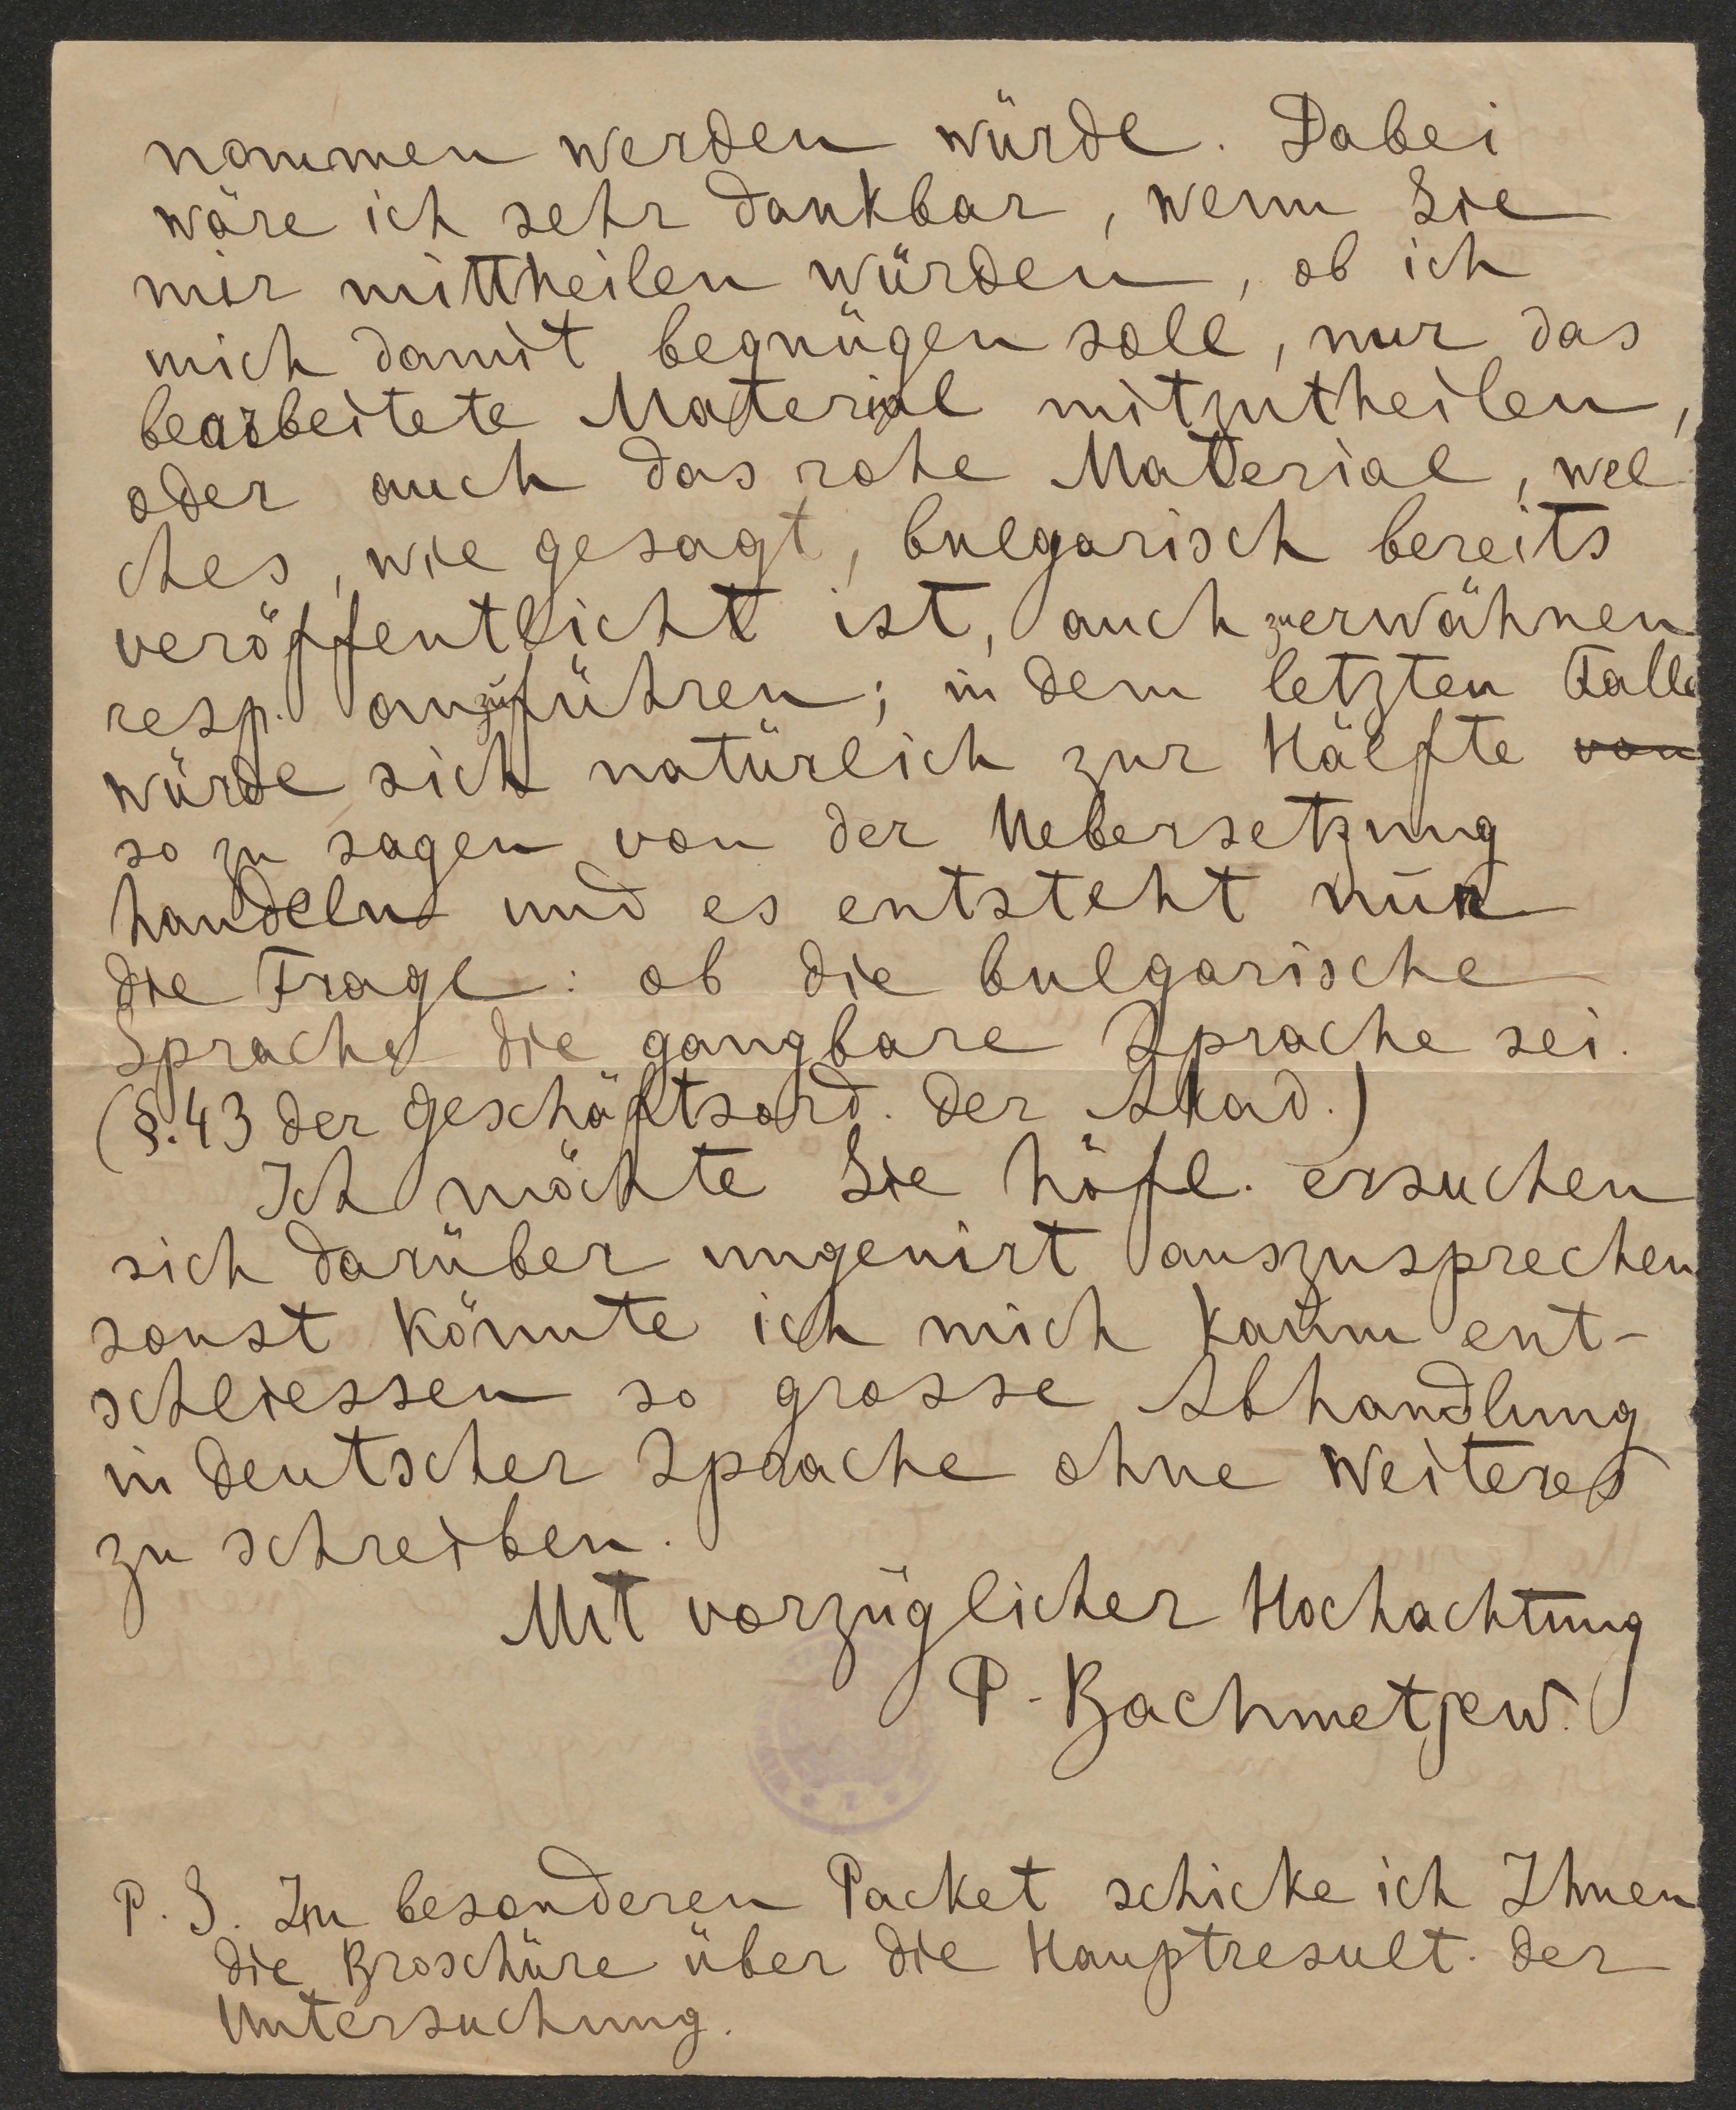 nommen werden würde. Dabei
wäre ich sehr dankbar, wenn Sie
mir mittheilen würden, ob ich
mich damit begnügen soll, nur das
bearbeitete Material mitzutheilen,
oder auch das rohe Material, wel
ches, wie gesagt, bulgarisch bereits
veröffentlicht ist, auch zu erwähnen
resp. anzuführen; in dem letzten Falle
würde sich natürlich zur Hälfte von
so zu sagen von der Uebersetzung
handeln und es entsteht nun
die Frage: ob die bulgarische
Sprache die gangbare Sprache sei.
(§.43 der Geschäftsord. der Akad.)
Ich möchte Sie höfl. ersuchen
sich darüber ungenirt auszusprechen
sonst könnte ich mich kaum ent-
schliessen so grosse Abhandlung
in deutscher Sprache ohne Weiteres
zu schreiben.
Mit vorzüglicher Hochachtung
P. Bachmetjew.
P. S. Im besonderen Packet schicke ich Ihnen
die Broschüre über die Hauptresult. der
Untersuchung.